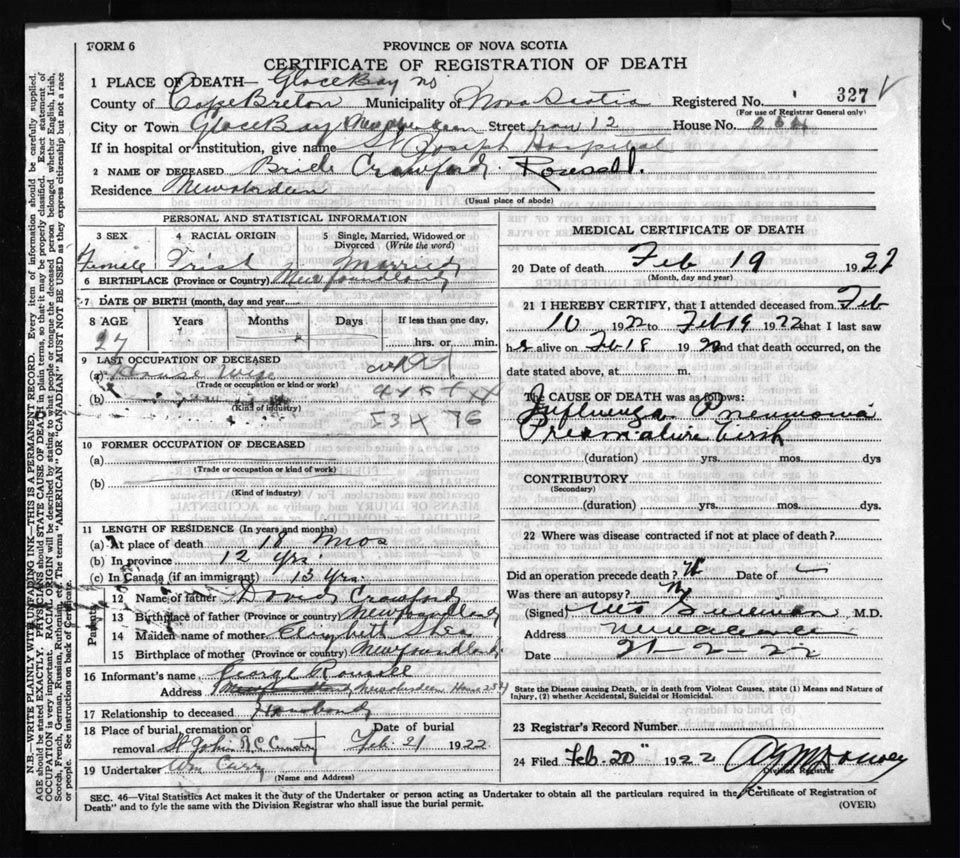 FORM 6
PROVINCE OF NOVA SCOTIA
CERTIFICATE OF REGISTRATION OF DEATH
1 PLACE OF DEATH— Glace Bay NS
County of Cape Breton Municipality of Nova Scotia Registered No. 327
(For use of Registrar General only)
City or Town Glace Bay Street row 12 House No. 254
If in hospital or institution, give name St Joseph Hospital
2 NAME OF DECEASED Bride Crawford Roussell.
Residence Newaberdeen
(Usual place of abode)
PERSONAL AND STATISTICAL INFORMATION
3 SEX 4 RACIAL ORIGIN 5 Single, Married, Widowed or Divorced (Write the word)
Female Irish Married
6 BIRTHPLACE (Province or Country) Newfoundland
7 DATE OF BIRTH (month, day and year)
8 AGE Years Months Days If less than one day,
27 hrs. or min.
9 LAST OCCUPATION OF DECEASED
(a) House Wife
(Trade or occupation or kind or work)
(b)
(Kind of industry)
10 FORMER OCCUPATION OF DECEASED
(a)
(Trade or occupation or kind of work)
(b)
(Kind of industry)
11 LENGTH OF RESIDENCE (In years and months)
(a) At place of death 18 mos
(b) In province 12 yrs.
(c) In Canada (if an immigrant) 13 yrs.
Parents
12 Name of father David Crawford
13 Birthplace of father (Province or country) Newfoundland
14 Maiden name of mother Elizabeth Shea
15 Birthplace of mother (Province or country) Newfoundland
16 Informant's name George Roussell
Address Newaberdeen House 254
17 Relationship to deceased Husband
18 Place of burial, cremation or removal St John R.C Cemetry Date of burial Feb. 21 1922
19 Undertaker Wm Curry
(Name and Address)
MEDICAL CERTIFICATE OF DEATH
20 Date of death Feb 19 1922
(Month, day and year)
21 I HEREBY CERTIFY, that I attended deceased from Feb
10 1922 to Feb 19 1922 that I last saw
her alive on Feb 18 1922 and that death occurred, on
date stated above, at m.
The CAUSE OF DEATH was as follows:
Influenza Pneumonia
Premature birth
(duration) yrs. mos. dys
CONTRIBUTORY
(Secondary)
(duration) yrs. mos. dys.
22 Where was disease contracted if not at place of death?
Did an operation precede death? Date of
Was there an autopsy?
(Signed) M.D.
Address
Date 21-2-22
State the Disease causing Death, or in death from Violent Causes, state (1) Means and Nature of
Injury, (2) whether Accidental, Suicidal or Homicidal.
23 Registrar's Record Number
24 Filed Feb. 20" 1922
Division Registrar
SEC. 46—Vital Statistics Act makes it the duty of the Undertaker or person acting as Undertaker to obtain all the particulars required in the "Certificate of Registration of
Death" and to fyle the same with the Division Registrar who shall issue the burial permit. (OVER)
N.B.—WRITE PLAINLY WITH UNFADING INK—THIS IS A PERMANENT RECORD. Every item of information should be carefully supplied.
AGE should be stated EXACTLY. PHYSICIANS should STATE CAUSE OF DEATH in plain terms, so that it may be properly classified. Exact statement of
OCCUPATION is very important. RACIAL ORIGIN will be described by stating to what people or tongue the deceased person belonged whether English, Irish,
Scotch, French, German, Russian, Ruthenian, etc. The terms "AMERICAN" OR "CANADIAN" MUST NOT BE USED as they express citizenship but not a race
or people. See instructions on back of Certificate.